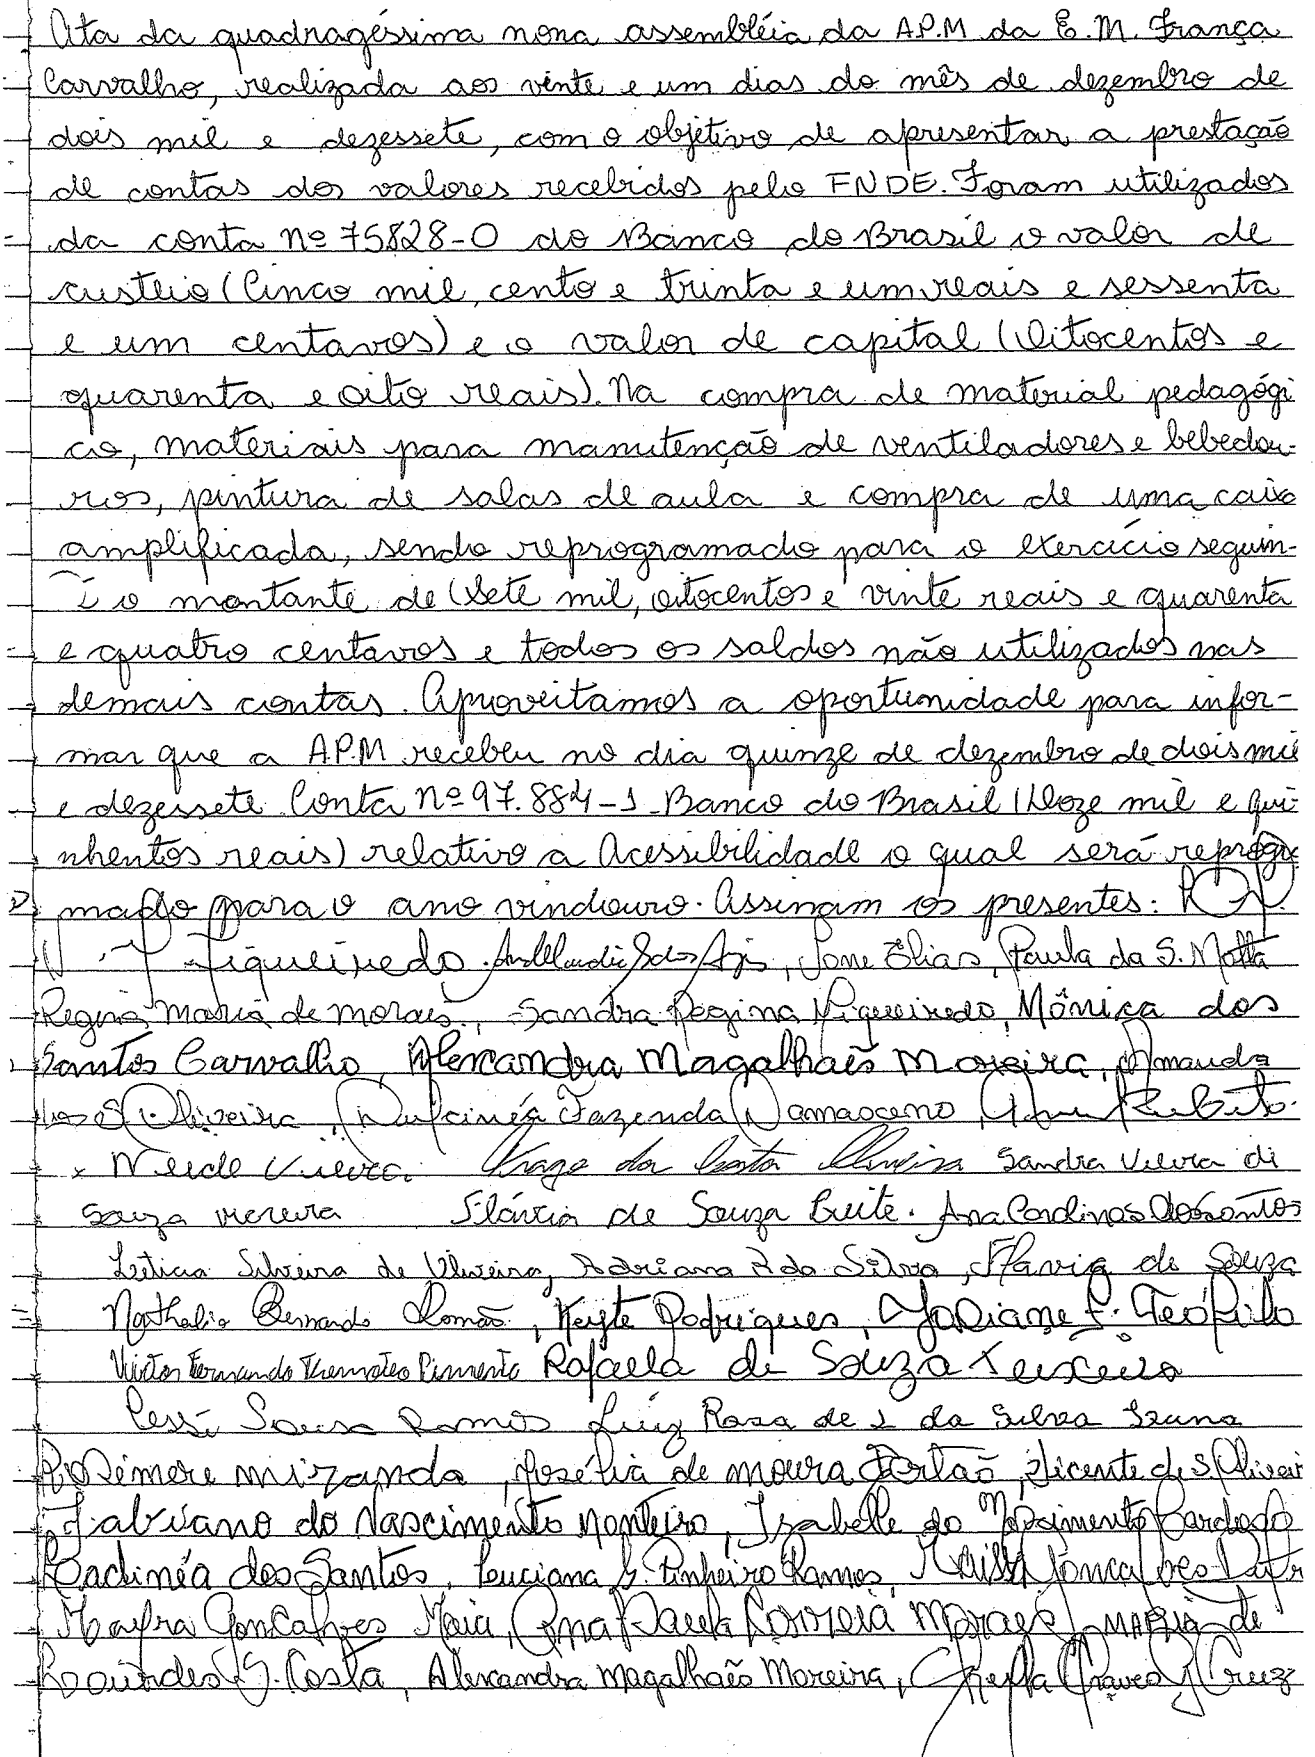 Ata da quadragéssima nona assembléia da A.P.M da E.M. França
Carvalho, realizada aos vinte e um dias do mês de dezembro de
dois mil e dezessete, com o objetivo de apresentar a prestação
de contas dos valores recebidos pelo FNDE. Foram utilizados
da conta nº 75828-0 do Banco do Brasil o valor de
custeio (Cinco mil, cento e trinta e um reais e sessenta
e um centavos) e o valor de capital (Oitocentos e
quarenta e oito reais). Na compra de material pedagógi
co, materiais para manutenção de ventiladores e bebedou-
ros, pintura de salas de aula e compra de uma caixa
amplificada, sendo reprogramado para o exercício seguin-
te o montante de (Sete mil, oitocentos e vinte reais e quarenta
e quatro centavos e todos os saldos não utilizados nas
demais contas. Aproveitamos a oportunidade para infor-
mar que a A.P.M recebeu no dia quinze de dezembro de dois mil
e dezessete Conta nº 97.884-1 Banco do Brasil (Doze mil e qui-
nhentos reais) relativo a Acessibilidade o qual será reprogra
mado para o ano vindouro. Assinam os presentes:
Figueiredo. Jane Elias, Paula da S. Matta
Regina maria de morais, Sandra Regina Figueiredo, Mônica dos
Santos Carvalho, Alexandra Magalhaês Moreira, Amanda
Oliveira, Dulcinéa Fazenda Damasceno,
Neide Vieira. Sandra Vieira di
Souza Flávia de Souza Leite. Ana Carolina dos Santos
Leticia Silveira de Oliveira, Adriana R da Silva, Flavia de Souza
Nathalia Bernardo Romão, Keyte Rodrigues, F. Teófilo
Victor Fernando Pimenta Rafaela di Souza Teixeira
Sousa Ramos Luiz Rosa de da Silva
Rosimere miranda, Josélia de moura, Vicente de S Oliveir
Fabiano do Nascimento Monteiro, Izabelle do Nascimento Cardoso
dos Santos, Luciana G. Pinheiro Ramos, Gonçalves
Mayra Gonçalves Maia, Ana Paula Correia Moraes, MARIA de
Lourdes G. Costa, Alexandra Magalhaês Moreira, Cruz